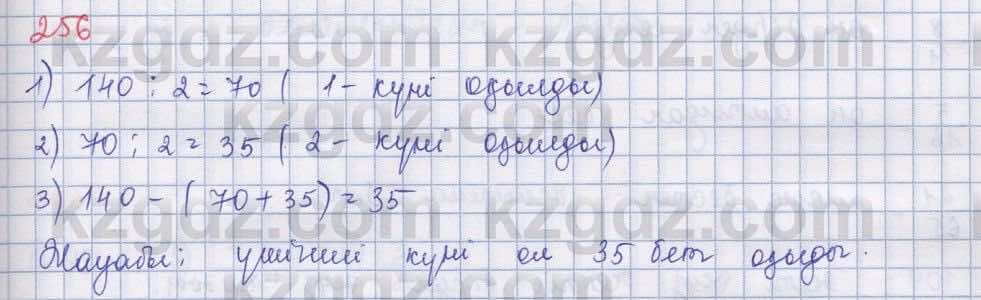 256
kzgdz.com kzgdz.com
1) 140 : 2 = 70 ( 1 - күні оқылды)
kzgdz.com
2) 70 : 2 = 35 ( 2 - күні оқылды)
3) 140 - ( 70 + 35) = 35
kzgdz.com kzgdz.com
Жауабы: үшінші күні ол 35 бет оқыды.